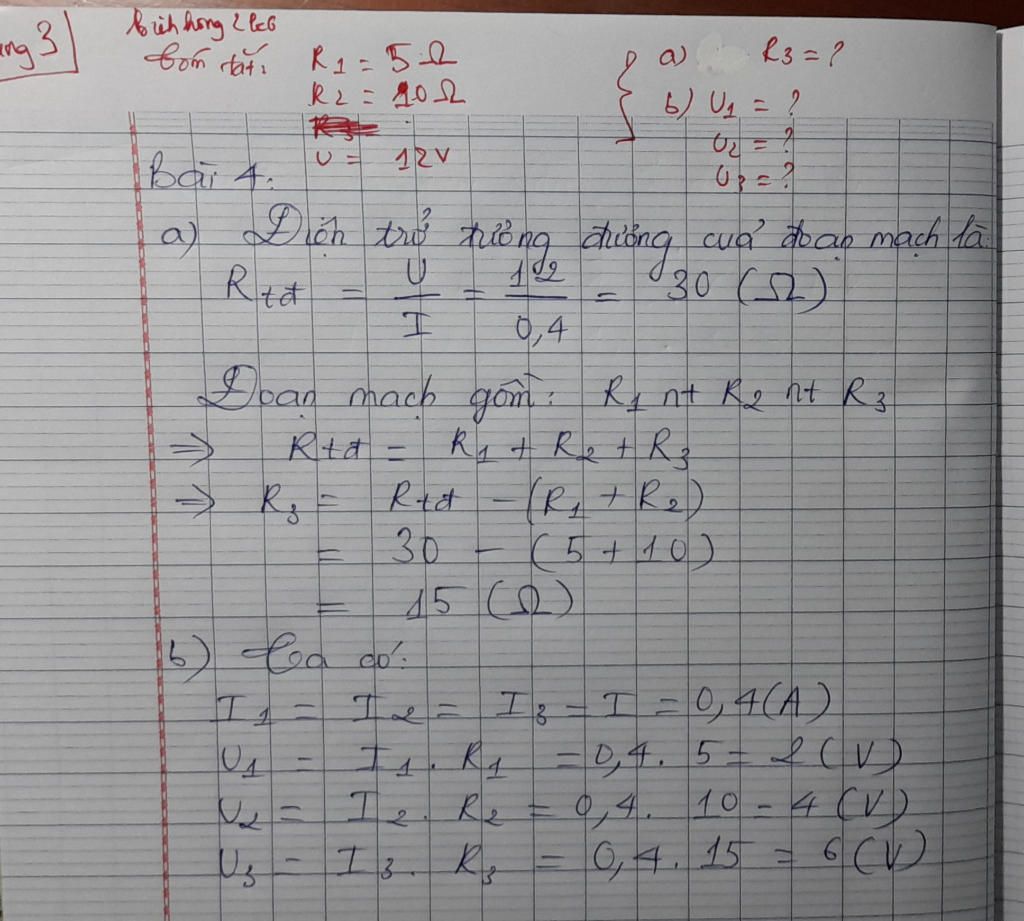 ng 3
Tóm tắt: R1 = 5 Ω
R2 = 10 Ω
U = 12V
a) R3 = ?
b) U1 = ?
U2 = ?
U3 = ?
Bài 4:
a) Điện trở tương đương của đoạn mạch là
Rtđ = U/I = 12/0,4 = 30 (Ω)
Đoạn mạch gồm: R1 nt R2 nt R3
=> Rtđ = R1 + R2 + R3
=> R3 = Rtđ - (R1 + R2)
= 30 - (5 + 10)
= 15 (Ω)
b) Ta có:
I1 = I2 = I3 = I = 0,4(A)
U1 = I1. R1 = 0,4. 5 = 2 (V)
U2 = I2. R2 = 0,4. 10 = 4 (V)
U3 = I3. R3 = 0,4. 15 = 6 (V)